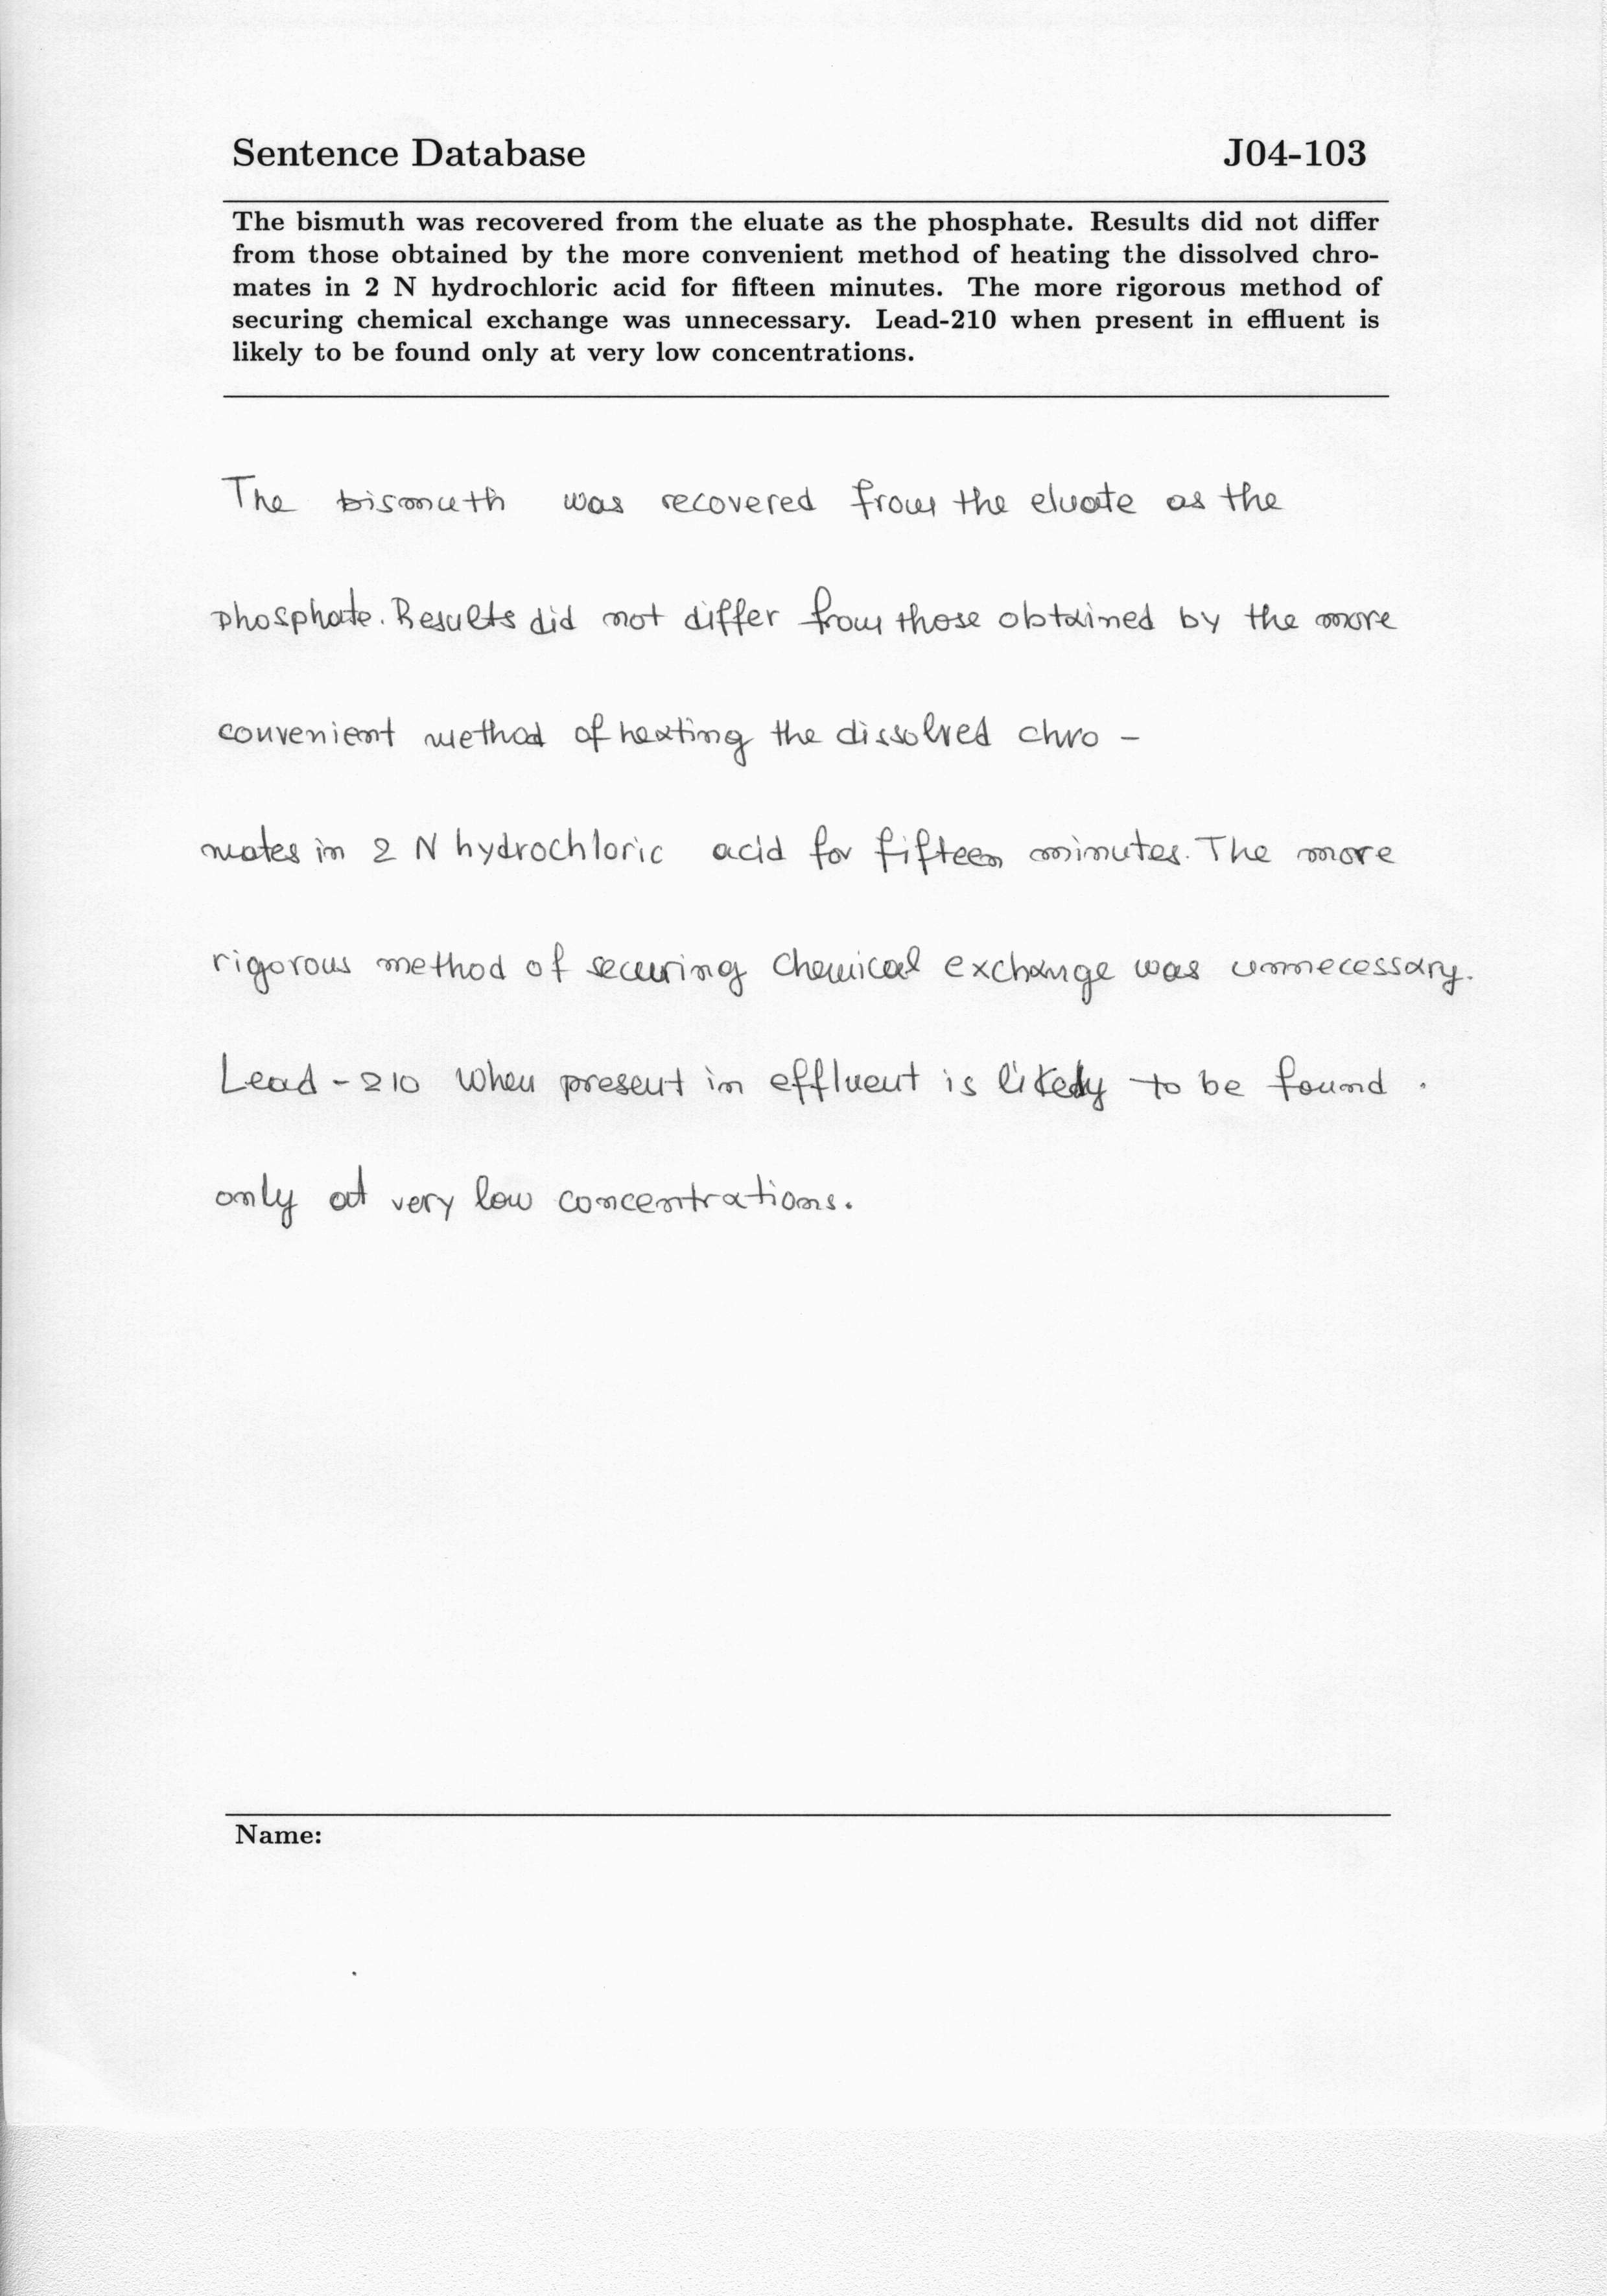 Sentence Database J04-103
The bismuth was recovered from the eluate as the phosphate. Results did not differ
from those obtained by the more convenient method of heating the dissolved chro-
mates in 2 N hydrochloric acid for fifteen minutes. The more rigorous method of
securing chemical exchange was unnecessary. Lead-210 when present in effluent is
likely to be found only at very low concentrations.
The bismuth was recovered from the eluate as the
phosphate. Results did not differ from those obtained by the more
convenient method of heating the dissolved chro -
mates in 2 N hydrochloric acid for fifteen minutes. The more
rigorous method of securing chemical exchange was unnecessary.
Lead - 210 when present in effluent is likely to be found .
only at very low concentrations.
Name: